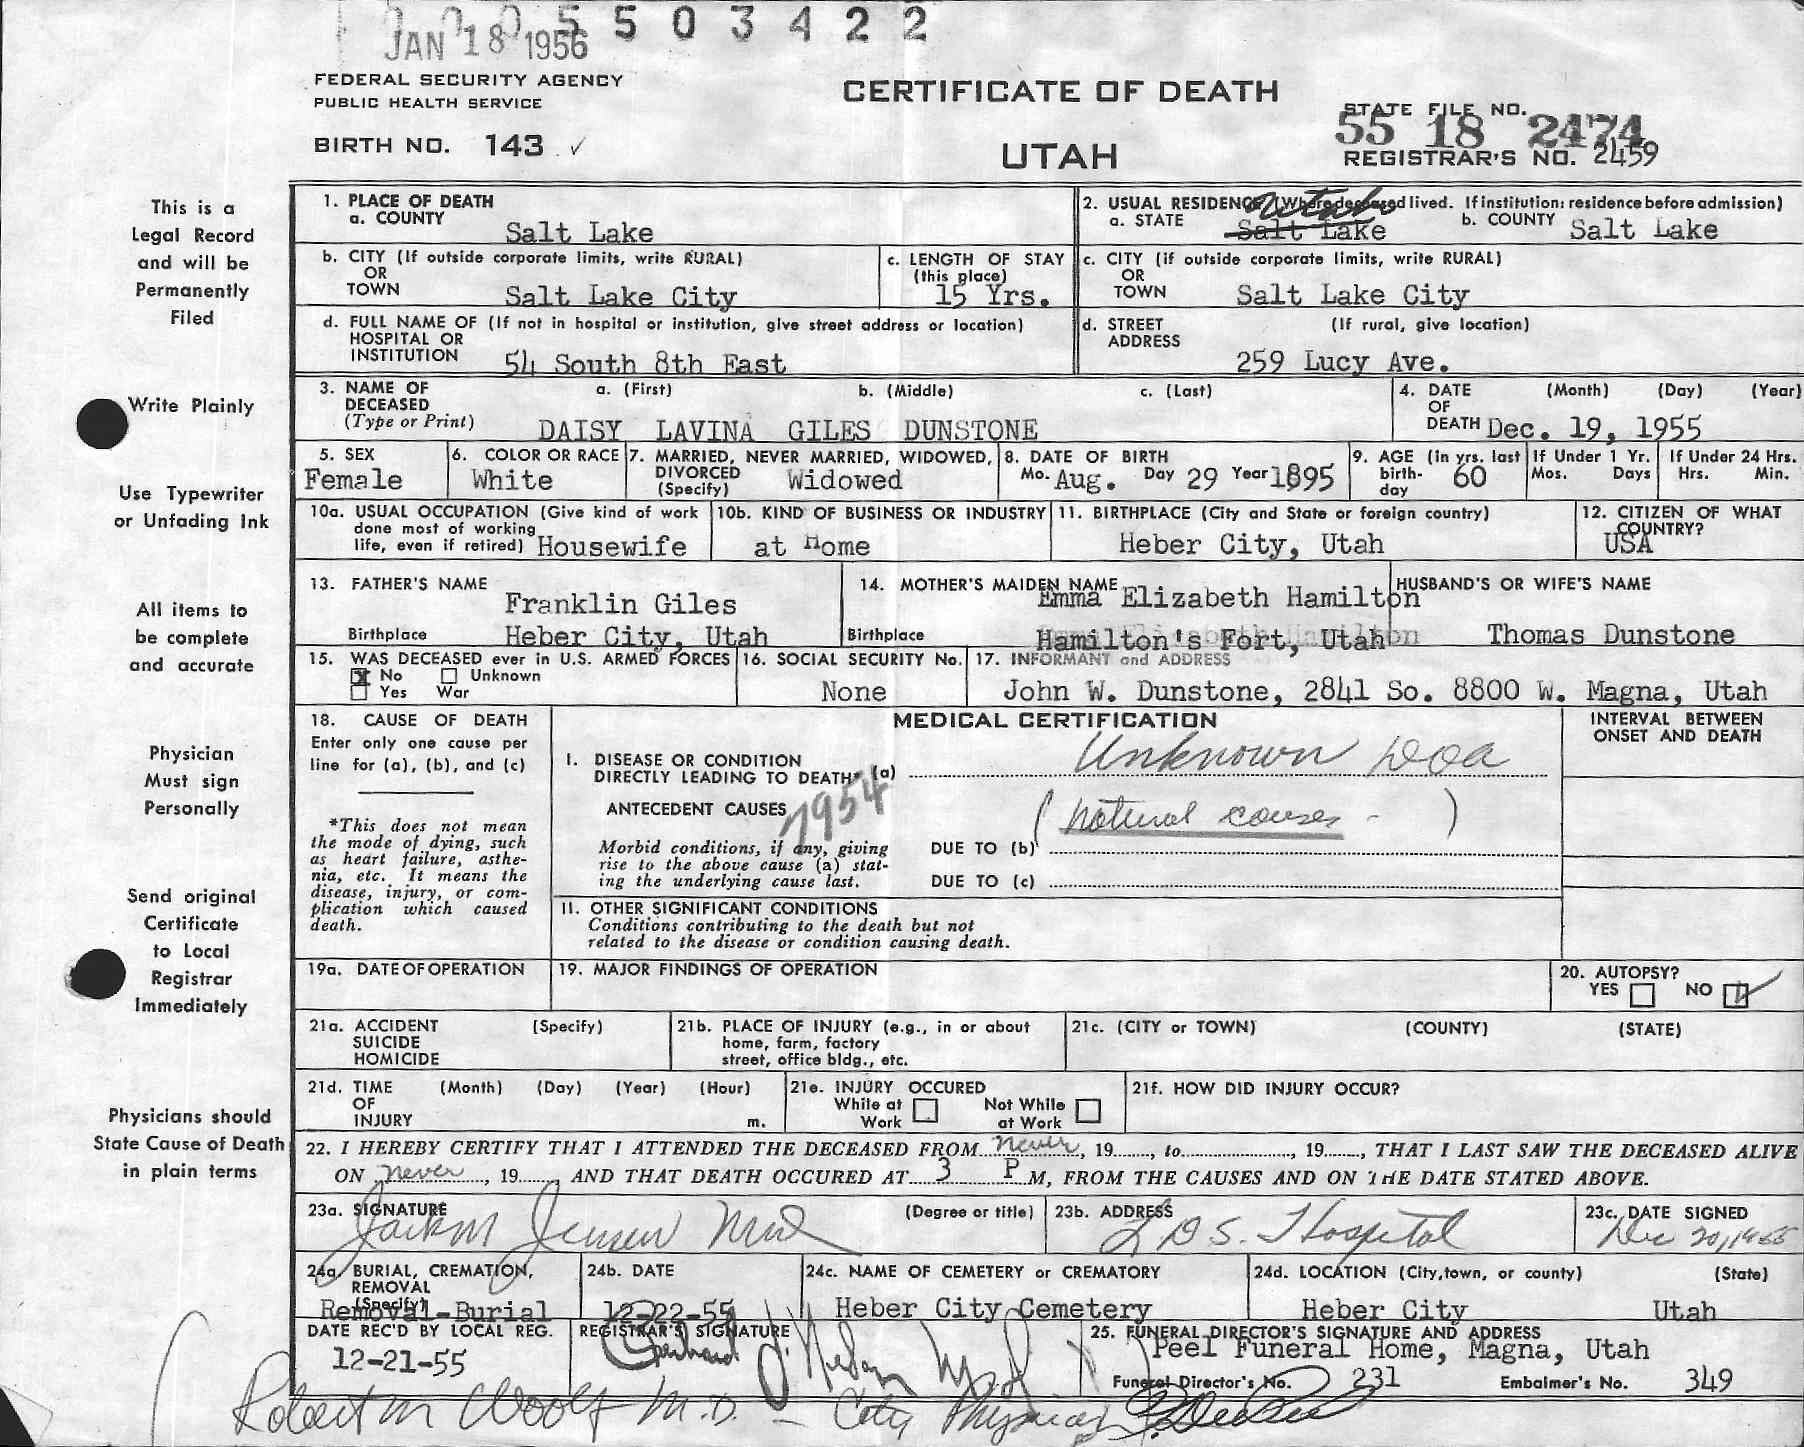 0 0 0 5 5 0 3 4 2 2
JAN 18 1956
FEDERAL SECURITY AGENCY
PUBLIC HEALTH SERVICE
BIRTH NO. 143 ✓
CERTIFICATE OF DEATH
UTAH
STATE FILE NO.
55 18 2474
REGISTRAR'S NO. 2459
This is a
Legal Record
and will be
Permanently
Filed
Write Plainly
Use Typewriter
or Unfading Ink
All items to
be complete
and accurate
Physician
Must sign
Personally
Send original
Certificate
to Local
Registrar
Immediately
Physicians should
State Cause of Death
in plain terms
1. PLACE OF DEATH
a. COUNTY
Salt Lake
2. USUAL RESIDENCE (Where deceased lived. If institution: residence before admission)
a. STATE Utah Salt Lake b. COUNTY Salt Lake
b. CITY (If outside corporate limits, write RURAL)
OR
TOWN Salt Lake City
c. LENGTH OF STAY
(this place)
15 Yrs.
c. CITY (if outside corporate limits, write RURAL)
OR
TOWN Salt Lake City
d. FULL NAME OF (If not in hospital or institution, give street address or location)
HOSPITAL OR
INSTITUTION 54 South 8th East
d. STREET (If rural, give location)
ADDRESS
259 Lucy Ave.
3. NAME OF a. (First) b. (Middle) c. (Last)
DECEASED
(Type or Print) DAISY LAVINA GILES DUNSTONE
4. DATE (Month) (Day) (Year)
OF
DEATH Dec. 19, 1955
5. SEX
Female
6. COLOR OR RACE
White
7. MARRIED, NEVER MARRIED, WIDOWED,
DIVORCED
(Specify) Widowed
8. DATE OF BIRTH
Mo. Aug. Day 29 Year 1895
9. AGE (in yrs. last
birth-
day 60
If Under 1 Yr.
Mos. Days
If Under 24 Hrs.
Hrs. Min.
10a. USUAL OCCUPATION (Give kind of work
done most of working
life, even if retired) Housewife
10b. KIND OF BUSINESS OR INDUSTRY
at Home
11. BIRTHPLACE (City and State or foreign country)
Heber City, Utah
12. CITIZEN OF WHAT
COUNTRY?
USA
13. FATHER'S NAME
Franklin Giles
Birthplace Heber City, Utah
14. MOTHER'S MAIDEN NAME
Emma Elizabeth Hamilton
Birthplace Hamilton's Fort, Utah
HUSBAND'S OR WIFE'S NAME
Thomas Dunstone
15. WAS DECEASED ever in U.S. ARMED FORCES
X No Unknown
Yes War
16. SOCIAL SECURITY No.
None
17. INFORMANT and ADDRESS
John W. Dunstone, 2841 So. 8800 W. Magna, Utah
18. CAUSE OF DEATH
Enter only one cause per
line for (a), (b), and (c)
*This does not mean
the mode of dying, such
as heart failure, asthe-
nia, etc. It means the
disease, injury, or com-
plication which caused
death.
MEDICAL CERTIFICATION
INTERVAL BETWEEN
ONSET AND DEATH
I. DISEASE OR CONDITION
DIRECTLY LEADING TO DEATH* (a) Unknown DOA
7954
ANTECEDENT CAUSES
(natural causes - )
Morbid conditions, if any, giving
rise to the above cause (a) stat-
ing the underlying cause last.
DUE TO (b)
DUE TO (c)
II. OTHER SIGNIFICANT CONDITIONS
Conditions contributing to the death but not
related to the disease or condition causing death.
19a. DATE OF OPERATION
19. MAJOR FINDINGS OF OPERATION
20. AUTOPSY?
YES NO ✓
21a. ACCIDENT (Specify)
SUICIDE
HOMICIDE
21b. PLACE OF INJURY (e.g., in or about
home, farm, factory
street, office bldg., etc.
21c. (CITY or TOWN) (COUNTY) (STATE)
21d. TIME (Month) (Day) (Year) (Hour)
OF
INJURY m.
21e. INJURY OCCURED
While at Work Not While at Work
21f. HOW DID INJURY OCCUR?
22. I HEREBY CERTIFY THAT I ATTENDED THE DECEASED FROM never, 19......, to..................., 19......, THAT I LAST SAW THE DECEASED ALIVE
ON never, 19......, AND THAT DEATH OCCURED AT 3 P M, FROM THE CAUSES AND ON THE DATE STATED ABOVE.
23a. SIGNATURE (Degree or title)
Jack M Jensen MD
23b. ADDRESS
LDS. Hospital
23c. DATE SIGNED
Dec 20, 1955
24a. BURIAL, CREMATION,
REMOVAL
(Specify)
Removal-Burial
24b. DATE
12-22-55
24c. NAME OF CEMETERY or CREMATORY
Heber City Cemetery
24d. LOCATION (City, town, or county) (State)
Heber City Utah
DATE REC'D BY LOCAL REG.
12-21-55
REGISTRAR'S SIGNATURE
25. FUNERAL DIRECTOR'S SIGNATURE AND ADDRESS
Peel Funeral Home, Magna, Utah
Funeral Director's No. 231 Embalmer's No. 349
Robert M Woolf M.D. - City Physician